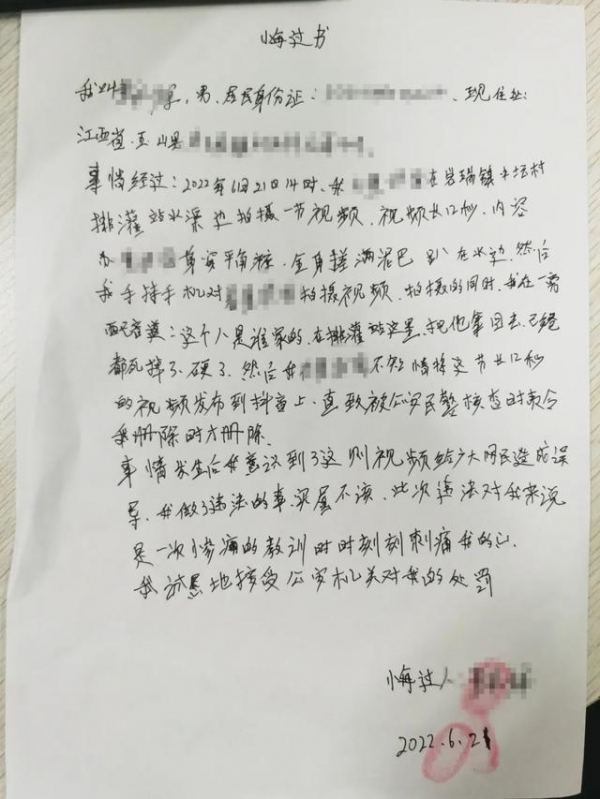 悔过书
我叫 军，男，居民身份证： 、现住址：
江西省玉山县
事情经过：2022年6月21日14时，我 在岩瑞镇 村
排灌站水渠边拍摄一节视频，视频长12秒，内容
为 穿灾平角裤，全身搓满泥巴趴在水边，然后
我手持手机对 拍摄视频，拍摄的同时，我在一旁
配音道：这个人是谁家的，在排灌站这里，把他拿回去，已经
都死掉了，硬了，然后在 不知情将这节长12秒
的视频发布到抖音上，直致被公安民警核查时责令
我删除时才删除。
事情发生后我意识到了这则视频给广大网民造成误
导，我做了违法的事，实属不该，此次违法对我来说
是一次惨痛的教训时时刻刻刺痛我的心
我 地接受公安机关对我的处罚
悔过人
2022.6.21